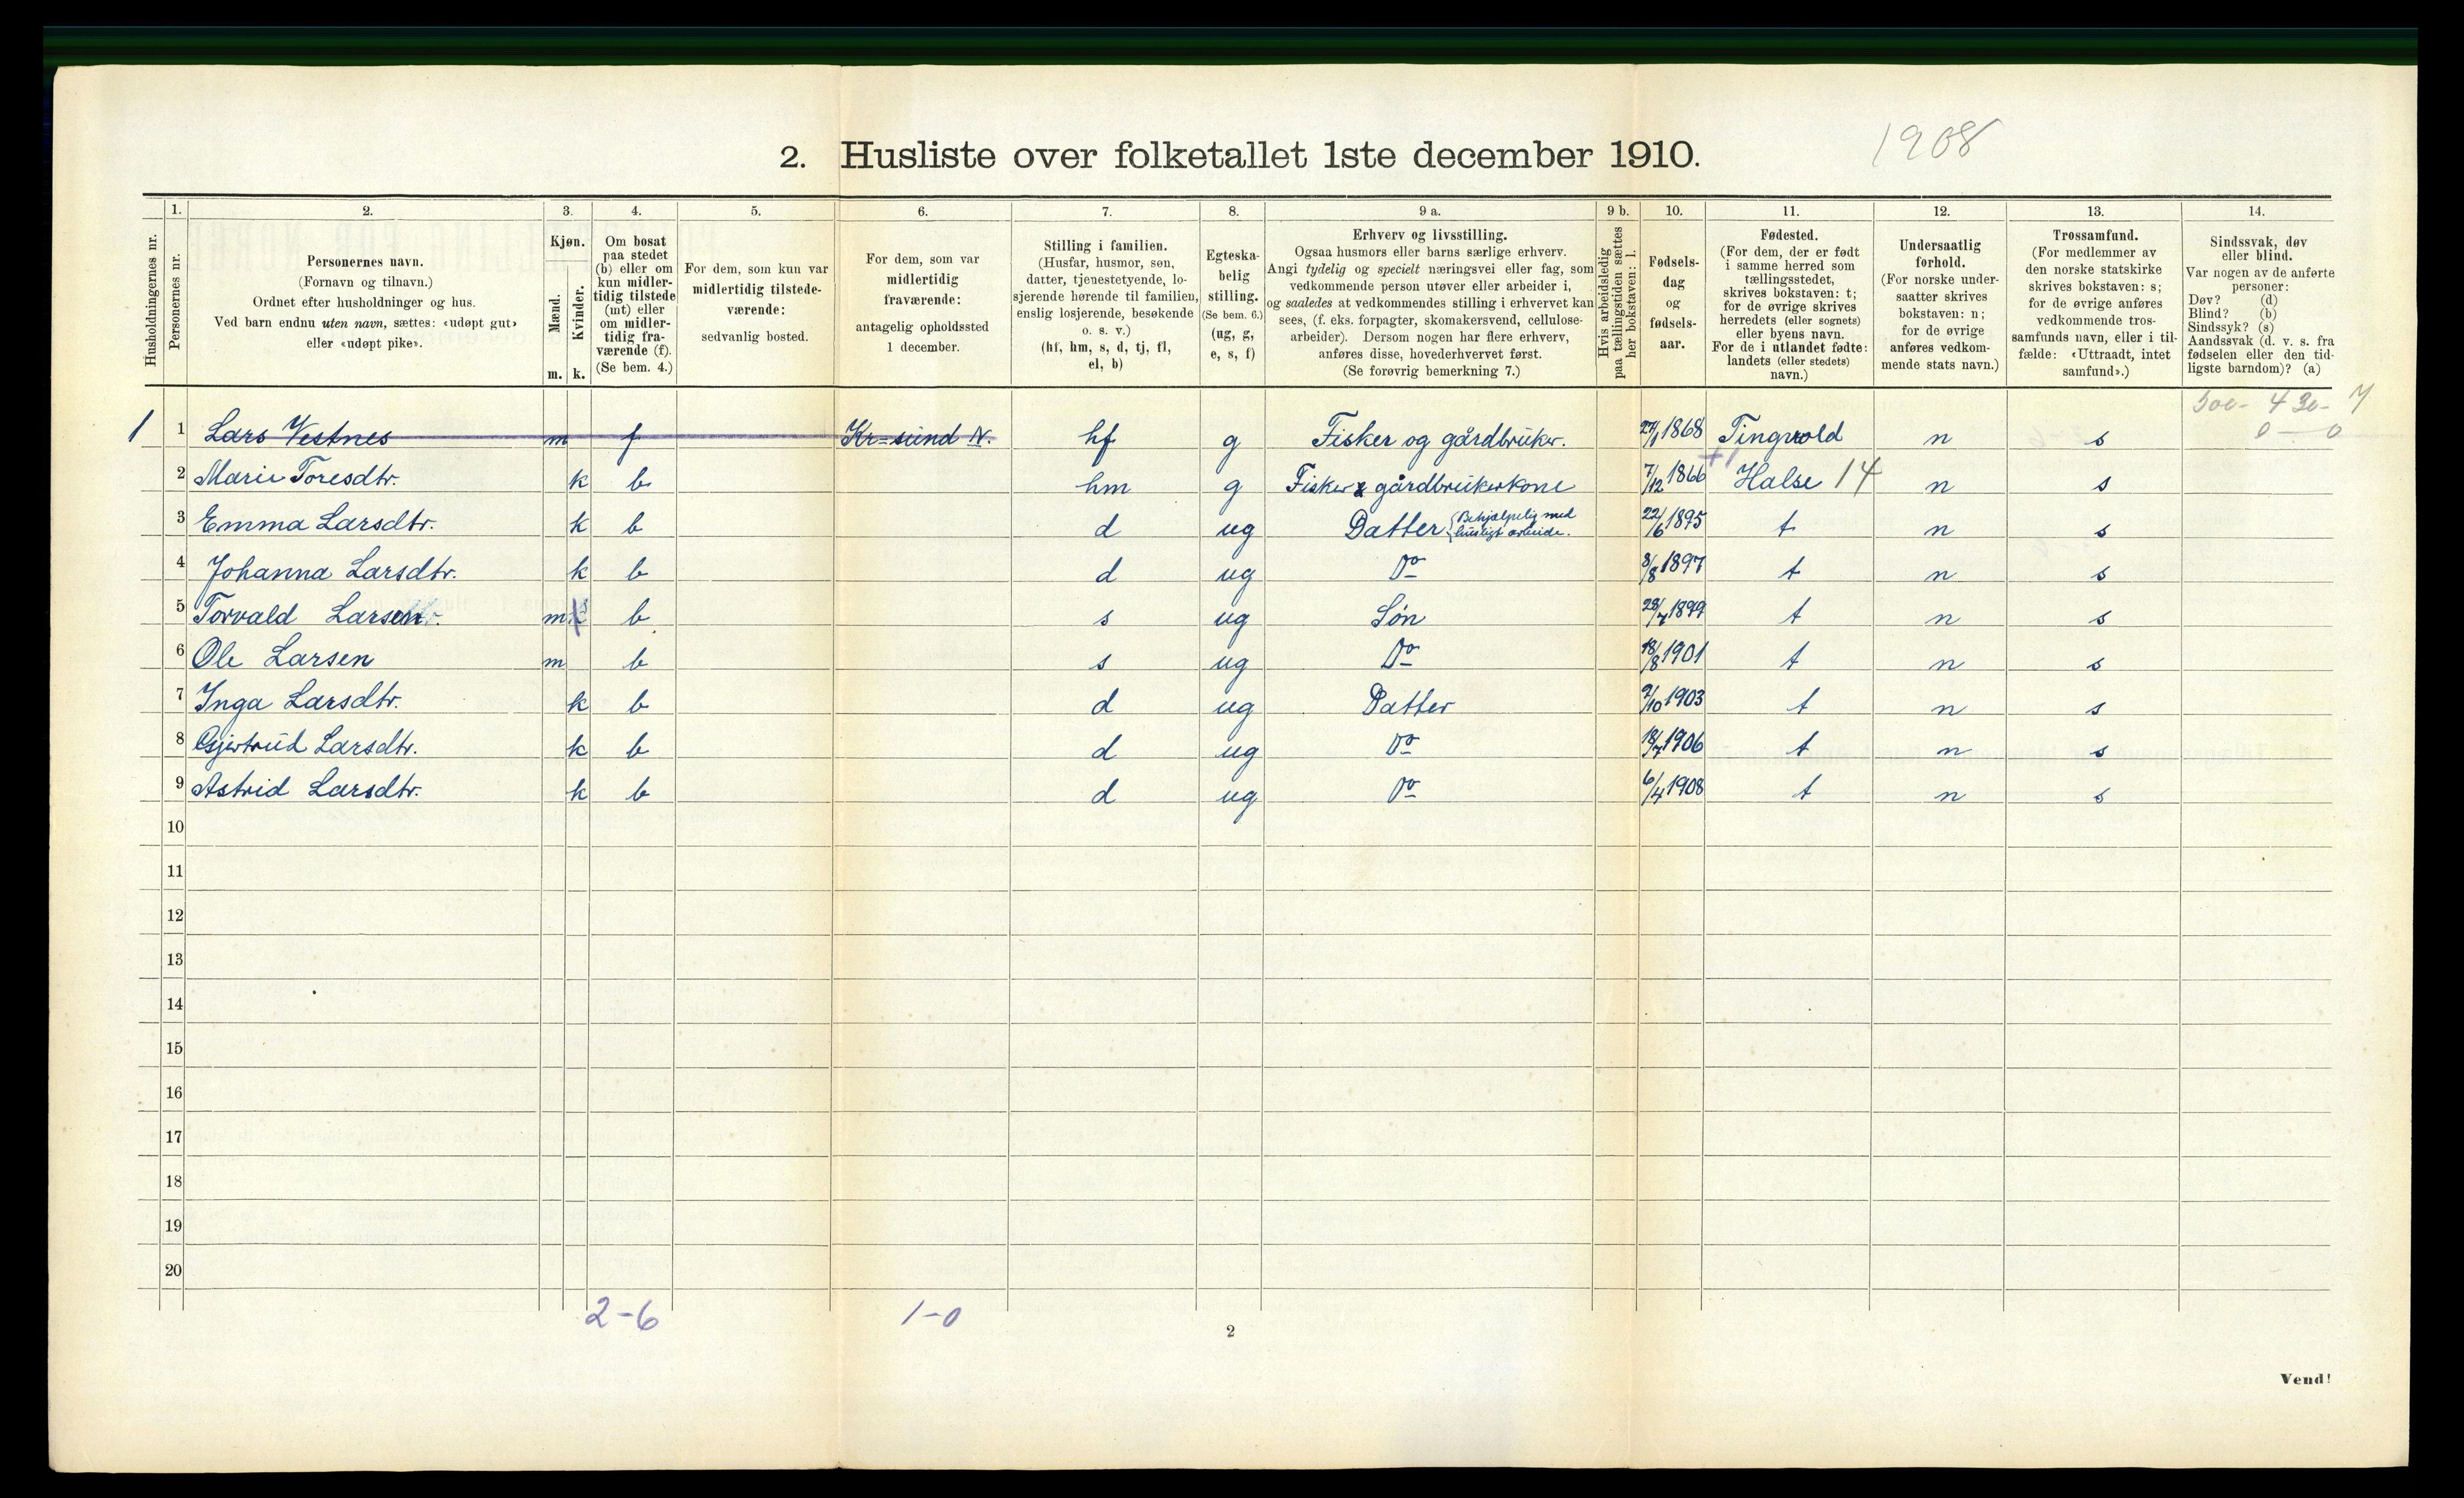 2. Husliste over folketallet 1ste december 1910.
1908
Husholdningernes nr.
1.
Personernes nr.
2.
Personernes navn.
(Fornavn og tilnavn.)
Ordnet efter husholdninger og hus.
Ved barn endnu uten navn, sættes: «udøpt gut»
eller «udøpt pike».
3.
Kjøn.
Mænd.
Kvinder.
m. k.
4.
Om bosat
paa stedet
(b) eller om
kun midler-
tidig tilstede
(mt) eller
om midler-
tidig fra-
værende (f).
(Se bem. 4.)
5.
For dem, som kun var
midlertidig tilstede-
værende:
sedvanlig bosted.
6.
For dem, som var
midlertidig
fraværende:
antagelig opholdssted
1 december.
7.
Stilling i familien.
(Husfar, husmor, søn,
datter, tjenestetyende, lo-
sjerende hørende til familien,
enslig losjerende, besøkende
o. s. v.)
(hf, hm, s, d, tj, fl,
el, b)
8.
Egteska-
belig
stilling.
(Se bem. 6.)
(ug, g,
e, s, f)
9 a.
Erhverv og livsstilling.
Ogsaa husmors eller barns særlige erhverv.
Angi tydelig og specielt næringsvei eller fag, som
vedkommende person utøver eller arbeider i,
og saaledes at vedkommendes stilling i erhvervet kan
sees, (f. eks. forpagter, skomakersvend, cellulose-
arbeider). Dersom nogen har flere erhverv,
anføres disse, hovederhvervet først.
(Se forøvrig bemerkning 7.)
9 b.
Hvis arbeidsledig
paa tællingstiden sættes
her bokstaven: l.
10.
Fødsels-
dag
og
fødsels-
aar.
11.
Fødested.
(For dem, der er født
i samme herred som
tællingsstedet,
skrives bokstaven: t;
for de øvrige skrives
herredets (eller sognets)
eller byens navn.
For de i utlandet fødte:
landets (eller stedets)
navn.)
12.
Undersaatlig
forhold.
(For norske under-
saatter skrives
bokstaven: n;
for de øvrige
anføres vedkom-
mende stats navn.)
13.
Trossamfund.
(For medlemmer av
den norske statskirke
skrives bokstaven: s;
for de øvrige anføres
vedkommende tros-
samfunds navn, eller i til-
fælde: «Uttraadt, intet
samfund».)
14.
Sindssvak, døv
eller blind.
Var nogen av de anførte
personer:
Døv? (d)
Blind? (b)
Sindssyk? (s)
Aandssvak (d. v. s. fra
fødselen eller den tid-
ligste barndom)? (a)
500- 430- 7
0 — 0
1 1 Lars Vestnes m f Kr=sund N. hf g Fisker og gårdbruker. 27/1 1868 Tingvold n s
2 Marie Toresdtr. k b hm g Fisker & gårdbrukerkone 7/12 1866 Halse 14 n s
3 Emma Larsdtr. k b d ug Datter {Behjælpelig med husligt arbeide. 22/6 1895 t n s
4 Johanna Larsdtr. k b d ug Do 8/8 1897 t n s
5 Torvald Larsen m b s ug Søn 28/7 1899 t n s
6 Ole Larsen m b s ug Do 18/8 1901 t n s
7 Inga Larsdtr. k b d ug Datter 9/10 1903 t n s
8 Gjertrud Larsdtr. k b d ug Do 18/7 1906 t n s
9 Astrid Larsdtr. k b d ug Do 6/4 1908 t n s
10
11
12
13
14
15
16
17
18
19
20
2-6
1-0
2
Vend!